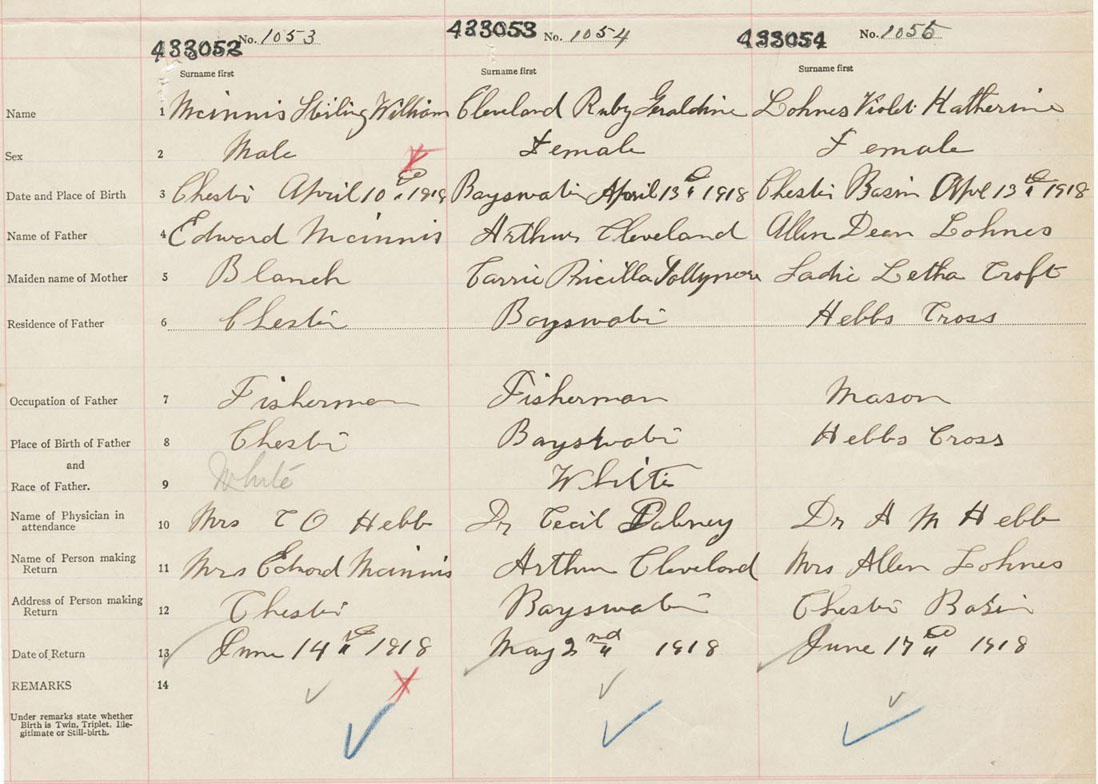 433052 No. 1053 433053 No. 1054 433054 No. 1055
Surname first Surname first Surname first
Name 1 Mcinnis Stirling William Cleveland Ruby Geraldine Lohnes Violet Katherine
Sex 2 Male Female Female
Date and Place of Birth 3 Chester April 10th 1918 Bayswater April 13th 1918 Chester Basin Aprl 13th 1918
Name of Father 4 Edward Mcinnis Arthur Cleveland Allen Dean Lohnes
Maiden name of Mother 5 Blanch Carrie Pricilla Sadie Letha Croft
Residence of Father 6 Chester Bayswater Hebbs Cross
Occupation of Father 7 Fisherman Fisherman Mason
Place of Birth of Father 8 Chester Bayswater Hebbs Cross
and
Race of Father. 9 White White
Name of Physician in
attendance 10 Mrs C O Hebb Dr Cecil Dr H M Hebb
Name of Person making
Return 11 Mrs Edword Mcinnis Arthur Cleveland Mrs Allen Lohnes
Address of Person making
Return 12 Chester Bayswater Chester Basin
Date of Return 13 June 14th 1918 May 2nd 1918 June 17th 1918
REMARKS 14
Under remarks state whether
Birth is Twin, Triplet, Ille-
gitimate or Still-birth.